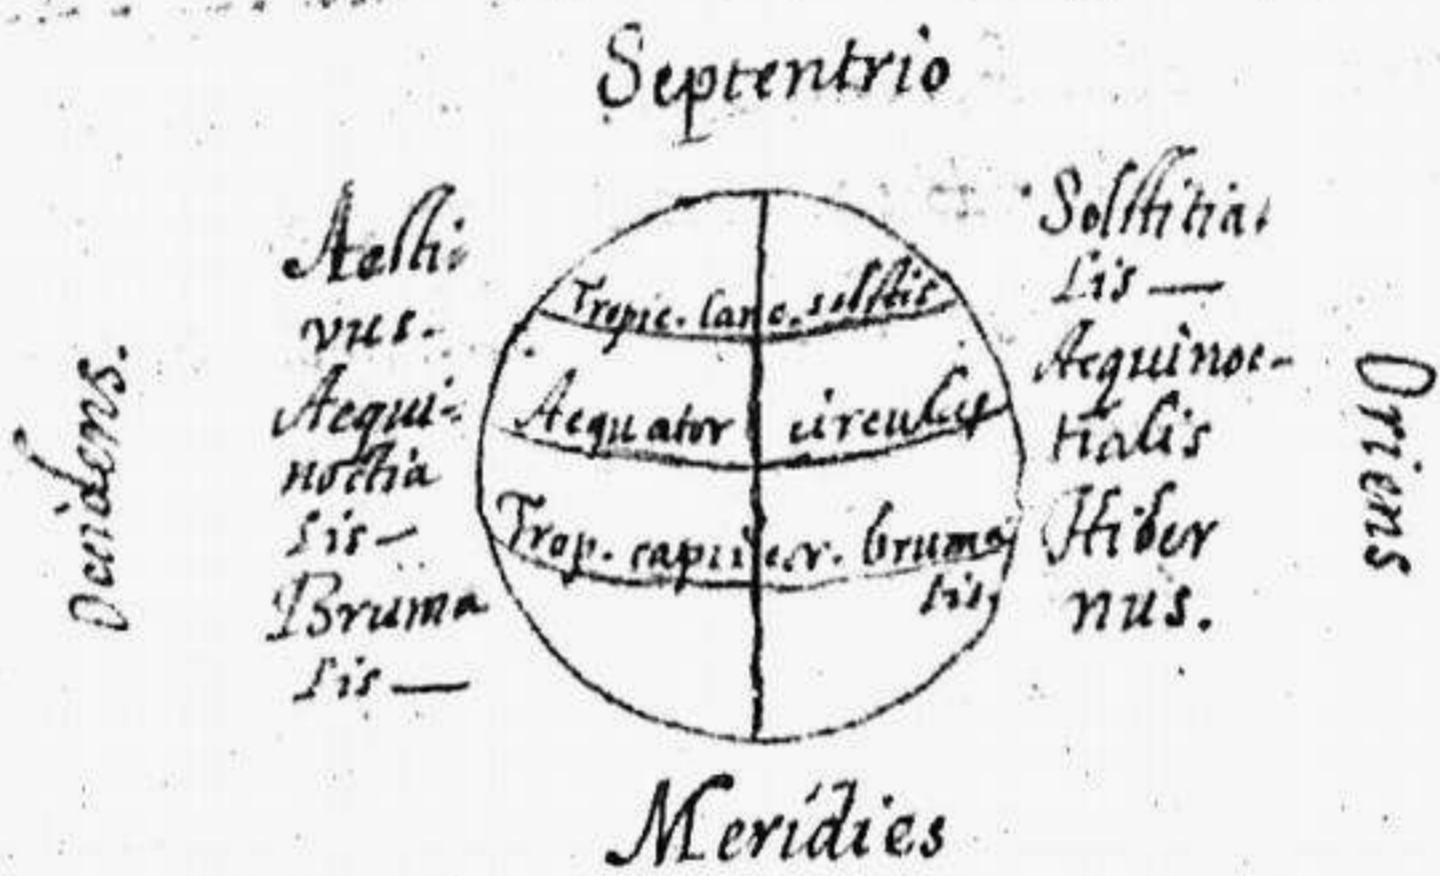 Septentrio
Aesti-
vus.
Aequi-
noctia
lis -
Bruma
lis —
Occidens.
Tropic. Canc. solstit
Aequator circulus
Trop. capricor. bruma
lis,
Solstitia-
lis —
Aequinoc-
tialis
Hiber
nus.
Oriens
Meridies